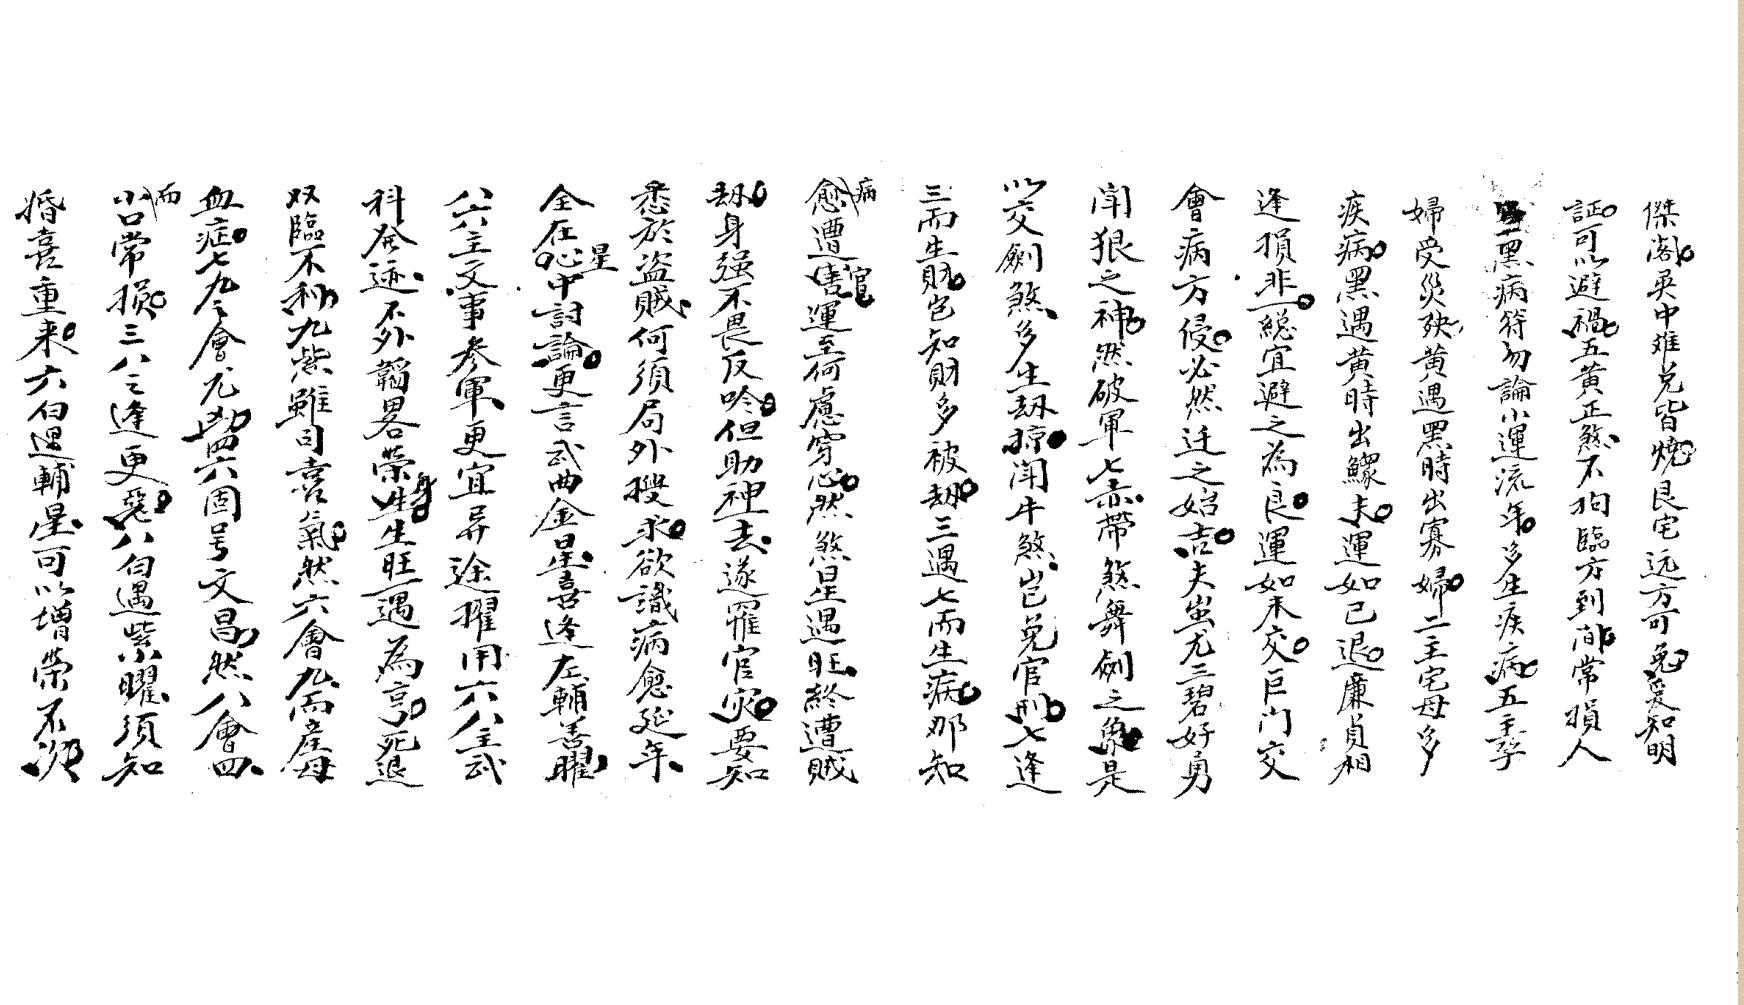 傑阁巽中难兑皆燒艮宅远方可免爰知明
証可以避禍五黄正煞不拘臨方到间常損人
二黑病符勿論小運流年多生疾病五主孕
婦受災殃黄遇黑時出寡婦二主宅母多
疾病黑遇黄時出鰥夫運如已退廉貞相
逢損非一縂宜避之為良運如未交巨门交
會病方侵必然迁之始吉夫蚩尤三碧好勇
闘狠之神然破軍七赤帶煞舞劍之象是
以交劍煞多生刼掠闘牛煞豈免官刑七逢
三而生財豈知財多被刼三遇七而生病那知
愈病遭官運至何慮穿心然煞星遇旺終遭賊
刼身强不畏反吟但助神去遂罹官灾要知
患於盗賊何須局外搜求欲識病愈延年
全在星中討論更言武曲金星喜逢左輔善曜
八六主文事参軍更宜异途擢用六八主武
科発迹不外韜畧榮身生旺一遇為亨死退
双臨不利九紫雖司喜氣然六會九而産母
血症七九之會尤凶四六固号文昌然八會四
而小口常損三八之逢更惡八白遇紫曜須知
婚喜重来六白遇輔星可以增榮不次